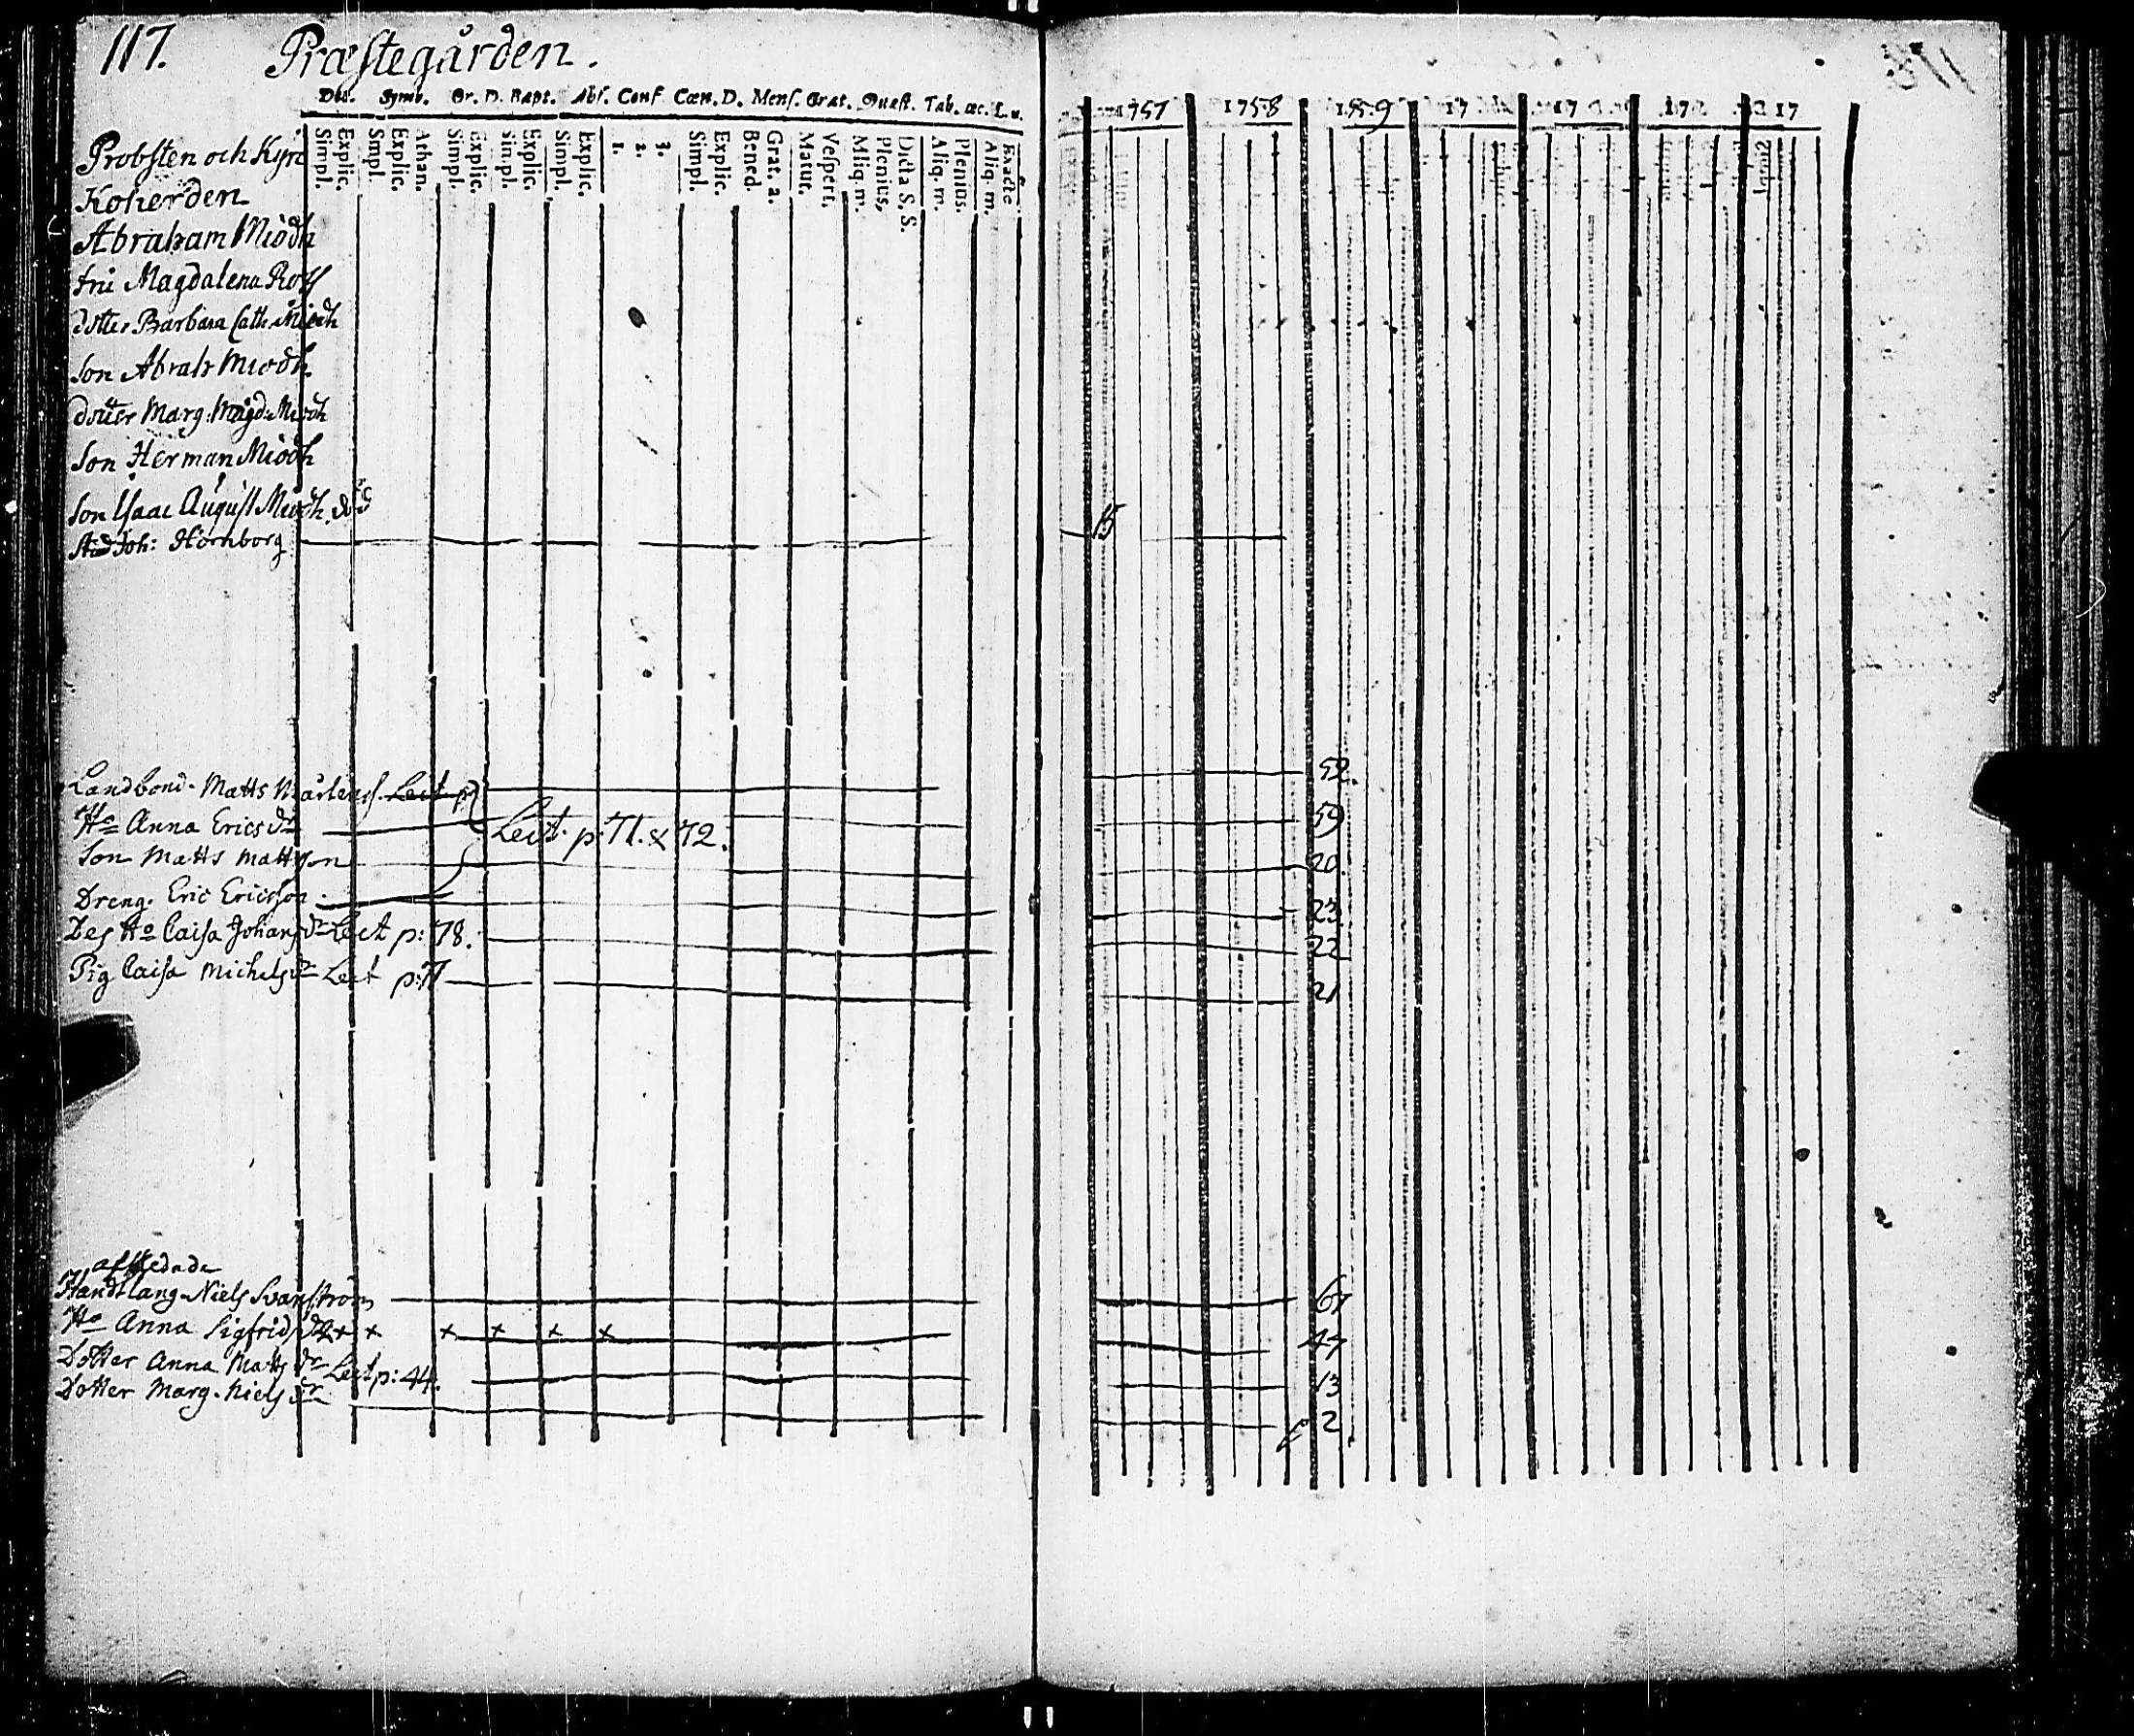 117. Præstegården.
Dec. Symb. Or. D. Bapt. Abs. Conf Cœn. D. Mens. Grat. Quæst. Tab. œc. L. u.
Simpl. Explic. Simpl. Explic. Athan. Simpl. Explic. Simpl. Explic. Simpl. Explic. 1. 2. 3. Simpl. Explic. Bened. Grat. a. Matut. Vespert. Aliq. m. Plenius. Dicta S. S. Aliq. m. Plenius. Aliq. m. Exacte
1757 1758 1759 17 17 17 17
Probsten och Kyrk
Koherden
Abraham Miödh
fru Magdalena Ross
dotter Barbara Cath: Miödh
Son Abrah Miodh
dotter Marg: Magd: Miodh
Son Herman Miödh
Son Isaac August Miodh. död
Stud Joh: Hornborg 15
Landbond. Matts Mårtens. Lect p: 52.
Ho Anna Ericsdr Lect. p: 71. & 72. 59
Son Matts Mattsson 20
Dreng. Eric Ericsson 23
Des Ho Caisa Johansdr Lect p: 78. 22
Pig Caisa Michelsdr Lect p: 71 21
Handtlang. Niels Svanström 67
Ho Anna Sigfridsdr x x x x x x 47
Dotter Anna Mattsdr Lect p: 44. 13
Dotter Marg. Nielsdr 2